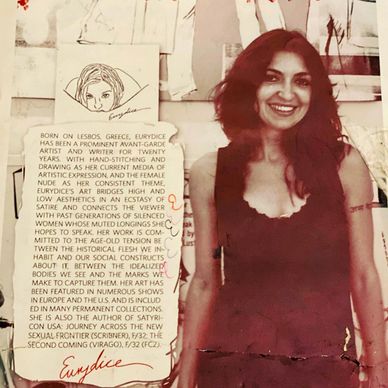 Eurydice
BORN ON LESBOS, GREECE, EURYDICE
HAS BEEN A PROMINENT AVANT-GARDE
ARTIST AND WRITER FOR TWENTY
YEARS. WITH HAND-STITCHING AND
DRAWING AS HER CURRENT MEDIA OF
ARTISTIC EXPRESSION, AND THE FEMALE
NUDE AS HER CONSISTENT THEME,
EURYDICE'S ART BRIDGES HIGH AND
LOW AESTHETICS IN AN ECSTASY OF
SATIRE AND CONNECTS THE VIEWER
WITH PAST GENERATIONS OF SILENCED
WOMEN WHOSE MUTED LONGINGS SHE
HOPES TO SPEAK. HER WORK IS COM-
MITTED TO THE AGE-OLD TENSION BE-
TWEEN THE HISTORICAL FLESH WE IN-
HABIT AND OUR SOCIAL CONSTRUCTS
ABOUT IT, BETWEEN THE IDEALIZED
BODIES WE SEE AND THE MARKS WE
MAKE TO CAPTURE THEM. HER ART HAS
BEEN FEATURED IN NUMEROUS SHOWS
IN EUROPE AND THE U.S. AND IS INCLUD
ED IN MANY PERMANENT COLLECTIONS.
SHE IS ALSO THE AUTHOR OF SATYRI-
CON USA: JOURNEY ACROSS THE NEW
SEXUAL FRONTIER (SCRIBNER), F/32: THE
SECOND COMING (VIRAGO), F/32 (FC2).
Eurydice